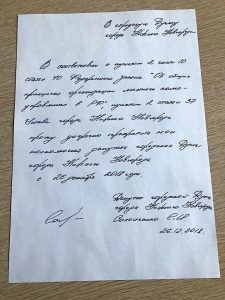 В городскую Думу
города Нижнего Новгорода
В соответствии с пунктом 2 части 10
статьи 40 Федерального закона "Об общих
принципах организации местного само-
управления в РФ", пунктом 2 статьи 37
Устава города Нижнего Новгорода
прошу досрочно прекратить мои
полномочия депутата городской Думы
города Нижнего Новгорода
с 26 декабря 2018 года.
Депутат городской Думы
города Нижнего Новгорода
Е.И.
26.12.2018.